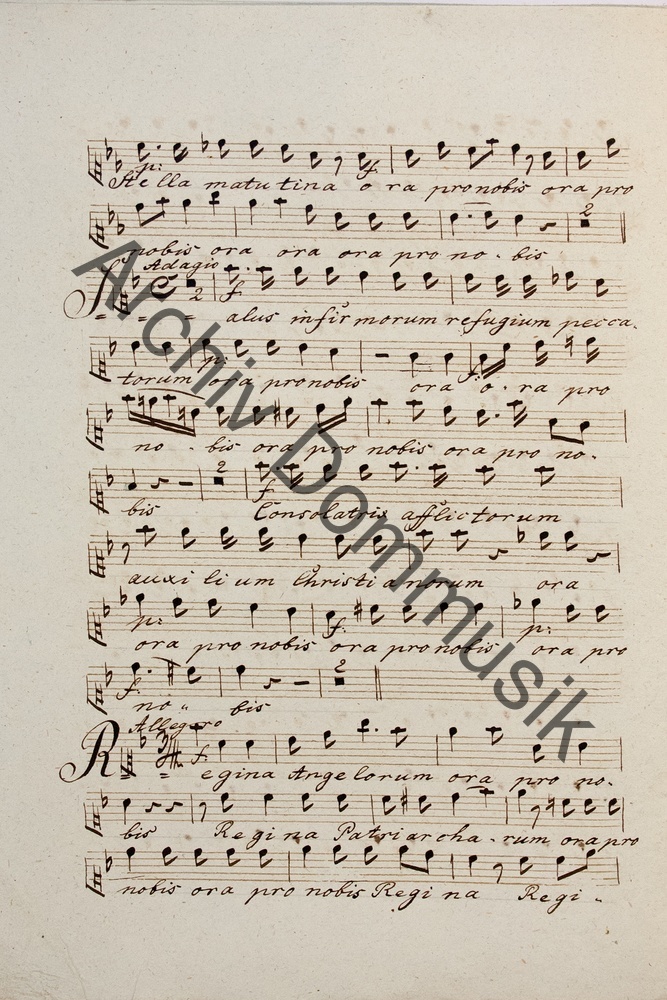 p: f
Stella matutina o ra pronobis ora pro
2
nobis ora ora ora pro no - bis
Adagio
2 f
Salus infirmorum refugium pecca-
p: f
torum ora pronobis ora o - ra pro
no - bis ora pro nobis ora pro no-
2
f
bis Consolatrix afflictorum
auxi li um Christi anorum ora
p: f: p:
ora pro nobis ora pro nobis ora pro
f: 2
no - bis
Allegro
f.
Regina Angelorum ora pro no-
bis Re gi na Patriarcha - rum ora pro
nobis ora pro nobis Regi na Regi -
Archiv Dommusik